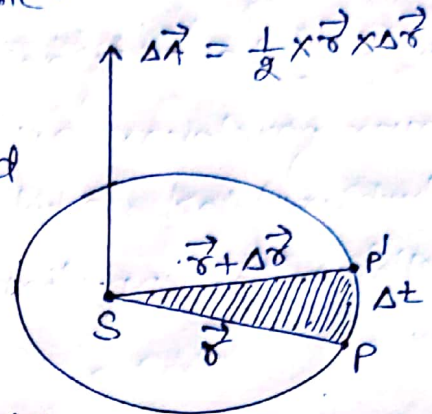 ΔA⃗ = 1/2 × r⃗ × Δr⃗
d
r⃗ + Δr⃗
P'
Δt
S
r⃗
P